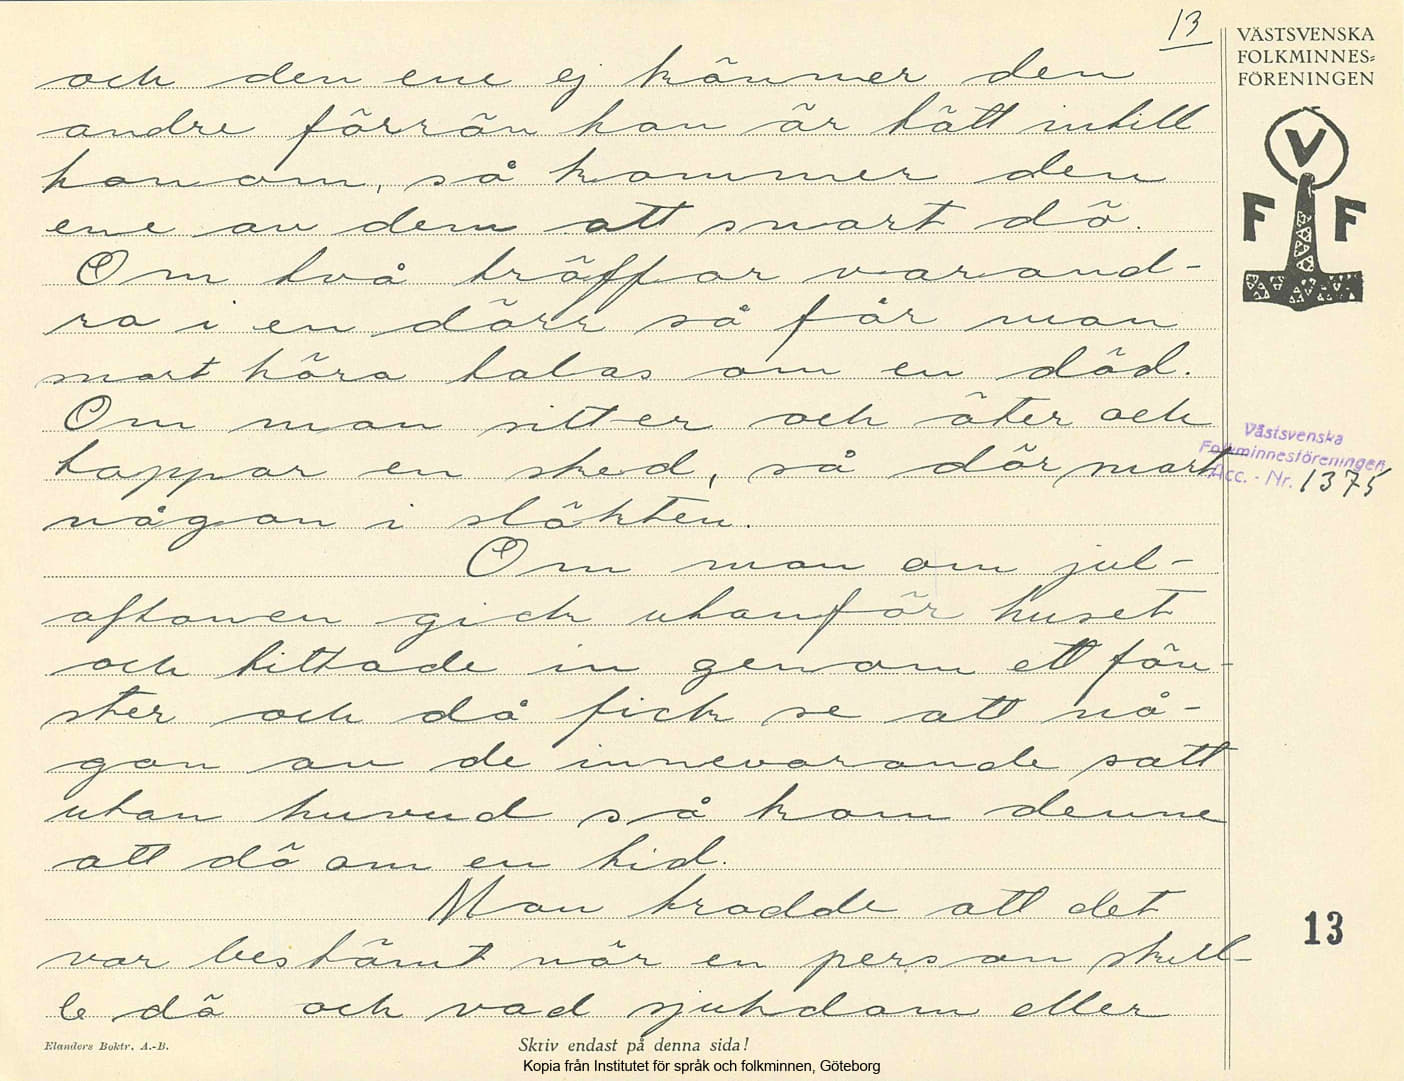 13
VÄSTSVENSKA
FOLKMINNES=
FÖRENINGEN
V
F F
och den ene ej känner den
andre förrän han är tätt intill
honom, så kommer den
ene av dem att snart dö.
Om två träffar varand-
ra i en dörr så får man
snart höra talas om en död.
Om man sitter och äter och
tappar en sked, så dör snart
någon i släkten.
Västsvenska
Folkminnesföreningen
Acc. - Nr. 1375
Om man om jul-
aftonen gick utanför huset
och tittade in genom ett fön-
ster och då fick se att nå-
gon av de innevarande satt
utan huvud så kom denne
att dö om en tid.
Man trodde att det
var bestämt när en person skull-
le dö och vad sjukdom eller
13
Elanders Boktr. A.-B.
Skriv endast på denna sida!
Kopia från Institutet för språk och folkminnen, Göteborg